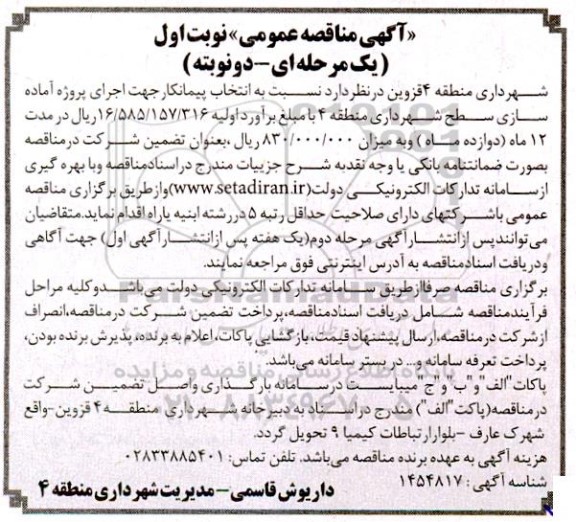 «آگهی مناقصه عمومی» نوبت اول
(یک مرحله ای - دو نوبته)
شهرداری منطقه ۴ قزوین در نظر دارد نسبت به انتخاب پیمانکار جهت اجرای پروژه آماده
سازی سطح شهرداری منطقه ۴ با مبلغ برآورد اولیه ۱۶/۵۸۵/۱۵۷/۳۱۶ ریال در مدت
۱۲ ماه (دوازده ماه) وبه میزان ۸۳۰/۰۰۰/۰۰۰ ریال ،بعنوان تضمین شرکت درمناقصه
بصورت ضمانتنامه بانکی یا وجه نقد به شرح جزییات مندرج در اسناد مناقصه وبا بهره گیری
از سامانه تدارکات الکترونیکی دولت(www.setadiran.ir) واز طریق برگزاری مناقصه
عمومی با شرکتهای دارای صلاحیت حداقل رتبه ۵ در رشته ابنیه یا راه اقدام نماید.متقاضیان
می توانند پس از انتشار آگهی مرحله دوم(یک هفته پس از انتشار آگهی اول) جهت آگاهی
ودریافت اسناد مناقصه به آدرس اینترنتی فوق مراجعه نمایند.
برگزاری مناقصه صرفا از طریق سامانه تدارکات الکترونیکی دولت می باشد وکلیه مراحل
فرآیند مناقصه شامل دریافت اسناد مناقصه،پرداخت تضمین شرکت در مناقصه،انصراف
از شرکت در مناقصه،ارسال پیشنهاد قیمت، بازگشایی پاکات، اعلام به برنده، پذیرش برنده بودن،
پرداخت تعرفه سامانه و... در بستر سامانه می باشد.
پاکات "الف" و "ب" و "ج" میبایست در سامانه بارگذاری واصل تضمین شرکت
درمناقصه(پاکت "الف") مندرج در اسناد به دبیرخانه شهرداری منطقه ۴ قزوین-واقع
شهرک عارف -بلوار ارتباطات کیمیا ۹ تحویل گردد.
هزینه آگهی به عهده برنده مناقصه می باشد. تلفن تماس: ۰۲۸۳۳۸۸۵۴۰۱
شناسه آگهی : ۱۴۵۴۸۱۷
داریوش قاسمی - مدیریت شهرداری منطقه ۴